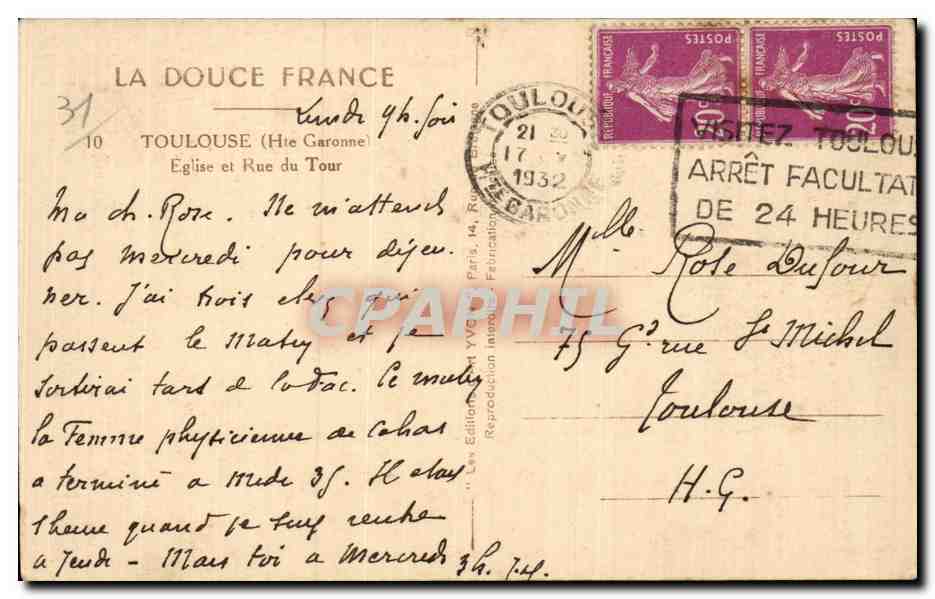 LA DOUCE FRANCE
31
Lundi 9h. soir
10 TOULOUSE (Hte Garonne)
Eglise et Rue du Tour
Ma ch. Rose. Ne m'attends
pas mercredi pour déjeu-
ner. J'ai trois elvs qui
passent le matin et je
sortirai tard de la Fac. Ce matin
la Femme physicienne de Cahors
a terminé à Midi 35. Il était
1 heure quand je suis rentré
a Jeudi - Mais toi a Mercredi 3h.
Les Editions d'Art YVON Paris, 14, Rue
Reproduction interdite. Fabrication
CPAPHIL
REPUBLIQUE FRANÇAISE
POSTES
20c
REPUBLIQUE FRANÇAISE
POSTES
20c
TOULOUSE
21
17
1932
Hte GARONNE
VISITEZ TOULOU
ARRÊT FACULTAT
DE 24 HEURES
Mlle Rose Dufour
75 Gde rue St Michel
Toulouse
H.G.